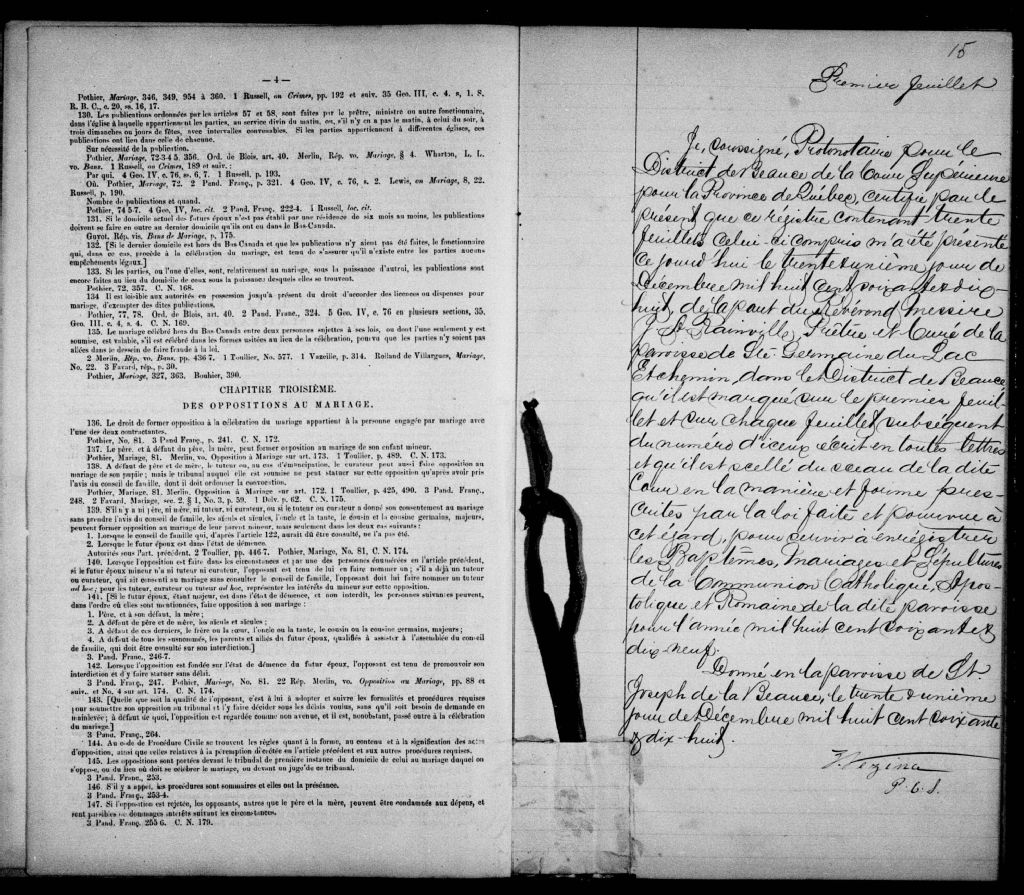 — 4 —
Pothier, Mariage, 346, 349, 954 à 360. 1 Russell, on Crimes, pp. 192 et suiv. 35 Geo. III, c. 4. s, 1. S.
R. B. C., c. 20, ss. 16, 17.
130. Les publications ordonnées par les articles 57 et 58, sont faites par le prêtre, ministre ou autre fonctionnaire,
dans l'église à laquelle appartiennent les parties, au service divin du matin, ou, s'il n'y en a pas le matin, à celui du soir, à
trois dimanches ou jours de fêtes, avec intervalles convenables. Si les parties appartiennent à différentes églises, ces
publications ont lieu dans celle de chacune.
Sur nécessité de la publication.
Pothier, Mariage, 72-3-4 5, 356. Ord. de Blois, art. 40. Merlin, Rép. vo. Mariage, § 4. Wharton, L. L.
vo. Bans. 1 Russell, on Crimes, 189 et suiv.:
Par qui. 4 Geo. IV, c. 76, ss. 6, 7. 1 Russell, p. 193.
Où. Pothier, Mariage, 72. 2 Pand. Franç., p. 321. 4 Geo. IV, c. 76, s. 2. Lewis, on Mariage, 8, 22.
Russell, p. 190.
Nombre de publications et quand.
Pothier, 74 5-7. 4 Geo. IV, loc. cit. 2 Pand Franç., 222-4. 1 Russell, loc. cit.
131. Si le domicile actuel des futurs époux n'est pas établi par une résidence de six mois au moins, les publications
doivent se faire en outre au dernier domicile qu'ils ont eu dans le Bas-Canada.
Guyot. Rép. vis. Bans de Mariage, p. 175.
132. [Si le dernier domicile est hors du Bas Canada et que les publications n'y aient pas été faites, le fonctionnaire
qui, dans ce cas, procède à la célébration du mariage, est tenu de s'assurer qu'il n'existe entre les parties aucuns
empêchements légaux.]
133. Si les parties, ou l'une d'elles, sont, relativement au mariage, sous la puissance d'autrui, les publications sont
encore faites au lieu du domicile de ceux sous la puissance desquels elles se trouvent.
Pothier, 72, 357. C. N. 168.
134 Il est loisible aux autorités en possession jusqu'à présent du droit d'accorder des licences ou dispenses pour
mariage, d'exempter des dites publications.
Pothier, 77, 78. Ord. de Blois, art. 40. 2 Pand. Franç., 324. 5 Geo. IV, c. 76 en plusieurs sections, 35.
Geo. III, c. 4, s. 4. C. N. 169.
135. Le mariage célébré hors du Bas Canada entre deux personnes sujettes à ses lois, ou dont l'une seulement y est
soumise, est valable, s'il est célébré dans les formes usitées au lieu de la célébration, pourvu que les parties n'y soient pas
allées dans le dessein de faire fraude à la loi.
2 Merlin, Rép. vo. Bans. pp. 436 7. 1 Toullier, No. 577. 1 Vazeille, p. 314. Rolland de Villargues, Mariage,
No. 22. 3 Favard, rép., p. 30.
Pothier, Mariage, 327, 363. Bouhier, 390.
CHAPITRE TROISIÈME.
DES OPPOSITIONS AU MARIAGE.
136. Le droit de former opposition à la célébration du mariage appartient à la personne engagée par mariage avec
l'une des deux contractantes.
Pothier, No. 81. 3 Pand Franç., p. 241. C. N. 172.
137. Le père, et à défaut du père, la mère, peut former opposition au mariage de son enfant mineur.
Pothier, Mariage, 81. Merlin, vo. Opposition à Mariage sur art. 173. 1 Toullier, p. 489. C. N. 173.
138. A défaut de père et de mère, le tuteur ou, au cas d'émancipation, le curateur peut aussi faire opposition au
mariage de son pupile; mais le tribunal auquel elle est soumise ne peut statuer sur cette opposition qu'après avoir pris
l'avis du conseil de famille, dont il doit ordonner la convocation.
Pothier, Mariage, 81. Merlin. Opposition à Mariage sur art. 172. 1 Toullier, p. 425, 490. 3 Pand. Franç.,
248. 2 Favard, Mariage, sec. 2, § 1, No. 3, p. 59. 1 Delv. p. 62. C. N. 175.
139. S'il n'y a ni père, ni mère, ni tuteur, ni curateur, ou si le tuteur ou curateur a donné son consentement au mariage
sans prendre l'avis du conseil de famille, les aïeuls et aïeules, l'oncle et la tante, le cousin et la cousine germains, majeurs,
peuvent former opposition au mariage de leur parent mineur, mais seulement dans les deux cas suivants:
1. Lorsque le conseil de famille qui, d'après l'article 122, aurait dû être consulté, ne l'a pas été.
2. Lorsque le futur époux est dans l'état de démence.
Autorités sous l'art. précédent. 2 Toullier, pp. 446 7. Pothier, Mariage, No. 81, C. N. 174.
140. Lorsque l'opposition est faite dans les circonstances et par une des personnes énumérées en l'article précédent,
si le futur époux mineur n'a ni tuteur ni curateur, l'opposant est tenu de lui en faire nommer un; s'il a déjà un tuteur
ou curateur, qui ait consenti au mariage sans consulter le conseil de famille, l'opposant doit lui faire nommer un tuteur
ad hoc; pour les tuteur, curateur ou tuteur ad hoc, représenter les intérêts du mineur sur cette opposition.
141. [Si le futur époux, étant majeur, est dans l'état de démence, et non interdit, les personnes suivantes peuvent,
dans l'ordre où elles sont mentionnées, faire opposition à son mariage:
1. Père, et à son défaut, la mère;
2. A défaut de père et de mère, les aïeuls et aïeules;
3. A défaut de ces derniers, le frère ou la sœur, l'oncle ou la tante, le cousin ou la cousine germains, majeurs;
4. A défaut de tous les susnommés, les parents et alliés du futur époux, qualifiés à assister à l'assemblée du conseil
de famille, qui doit être consulté sur son interdiction.]
3 Pand. Franç., 246-7.
142. Lorsque l'opposition est fondée sur l'état de démence du futur époux, l'opposant est tenu de promouvoir son
interdiction et d'y faire statuer sans délai.
3 Pand Franç., 247. Pothier, Mariage, No. 81. 22 Rép. Merlin, vo. Opposition au Mariage, pp. 88 et
suiv., et No. 4 sur art. 174. C. N. 174.
143. [Quelle que soit la qualité de l'opposant, c'est à lui à adopter et suivre les formalités et procédures requises
pour soumettre son opposition au tribunal et l'y faire décider sous les délais voulus, sans qu'il soit besoin de demande en
mainlevée; à défaut de quoi, l'opposition est regardée comme non avenue, et il est, nonobstant, passé outre à la célébration
du mariage.]
3 Pand. Franç., 264.
144. Au code de Procédure Civile se trouvent les règles quant à la forme, au contenu et à la signification des actes
d'opposition, ainsi que celles relatives à la péremption décrétée en l'article précédent et aux autres procédures requises.
145. Les oppositions sont portées devant le tribunal de première instance du domicile de celui au mariage duquel on
s'oppose, ou du lieu où doit se célébrer le mariage, ou devant un juge de ce tribunal.
3 Pand. Franç., 253.
146 S'il y a appel, les procédures sont sommaires et elles ont la préséance.
3 Pand. Franç., 253-4.
147. Si l'opposition est rejetée, les opposants, autres que le père et la mère, peuvent être condamnés aux dépens, et
sont passibles de dommages intérêts suivant les circonstances.
3 Pand. Franç., 255 6. C. N. 179.
15
Premier feuillet
Je, soussigné, Protonotaire pour le
District de Beauce de la Cour Supérieure
pour la Province de Québec, certifie par le
présent que ce registre contenant trente
feuillets celui-ci compris m'a été présenté
ce jourd'hui le trente & unième jour de
Décembre mil huit cent soixante & dix-
huit, de la part du Révérend Messire
J. A. Rainville, Prêtre et Curé de la
paroisse de Ste Germaine du Lac
Etchemin, dans le District de Beauce
qu'il est marqué sur le premier feuil-
let et sur chaque feuillet subséquent
du numéro d'iceux écrit en toutes lettres
et qu'il est scellé du sceau de la dite
Cour en la manière et forme pres-
crites par la loi faite et pourvue à
cet égard, pour servir à enrégistrer
les Baptêmes, Mariages et Sépultures
de la Communion Catholique, Apos-
tolique et Romaine de la dite paroisse
pour l'année mil huit cent soixante &
dix-neuf.
Donné en la paroisse de St.
Joseph de la Beauce, le trente & unième
jour de Décembre mil huit cent soixante
& dix-huit.
Vezina
P. C. S.